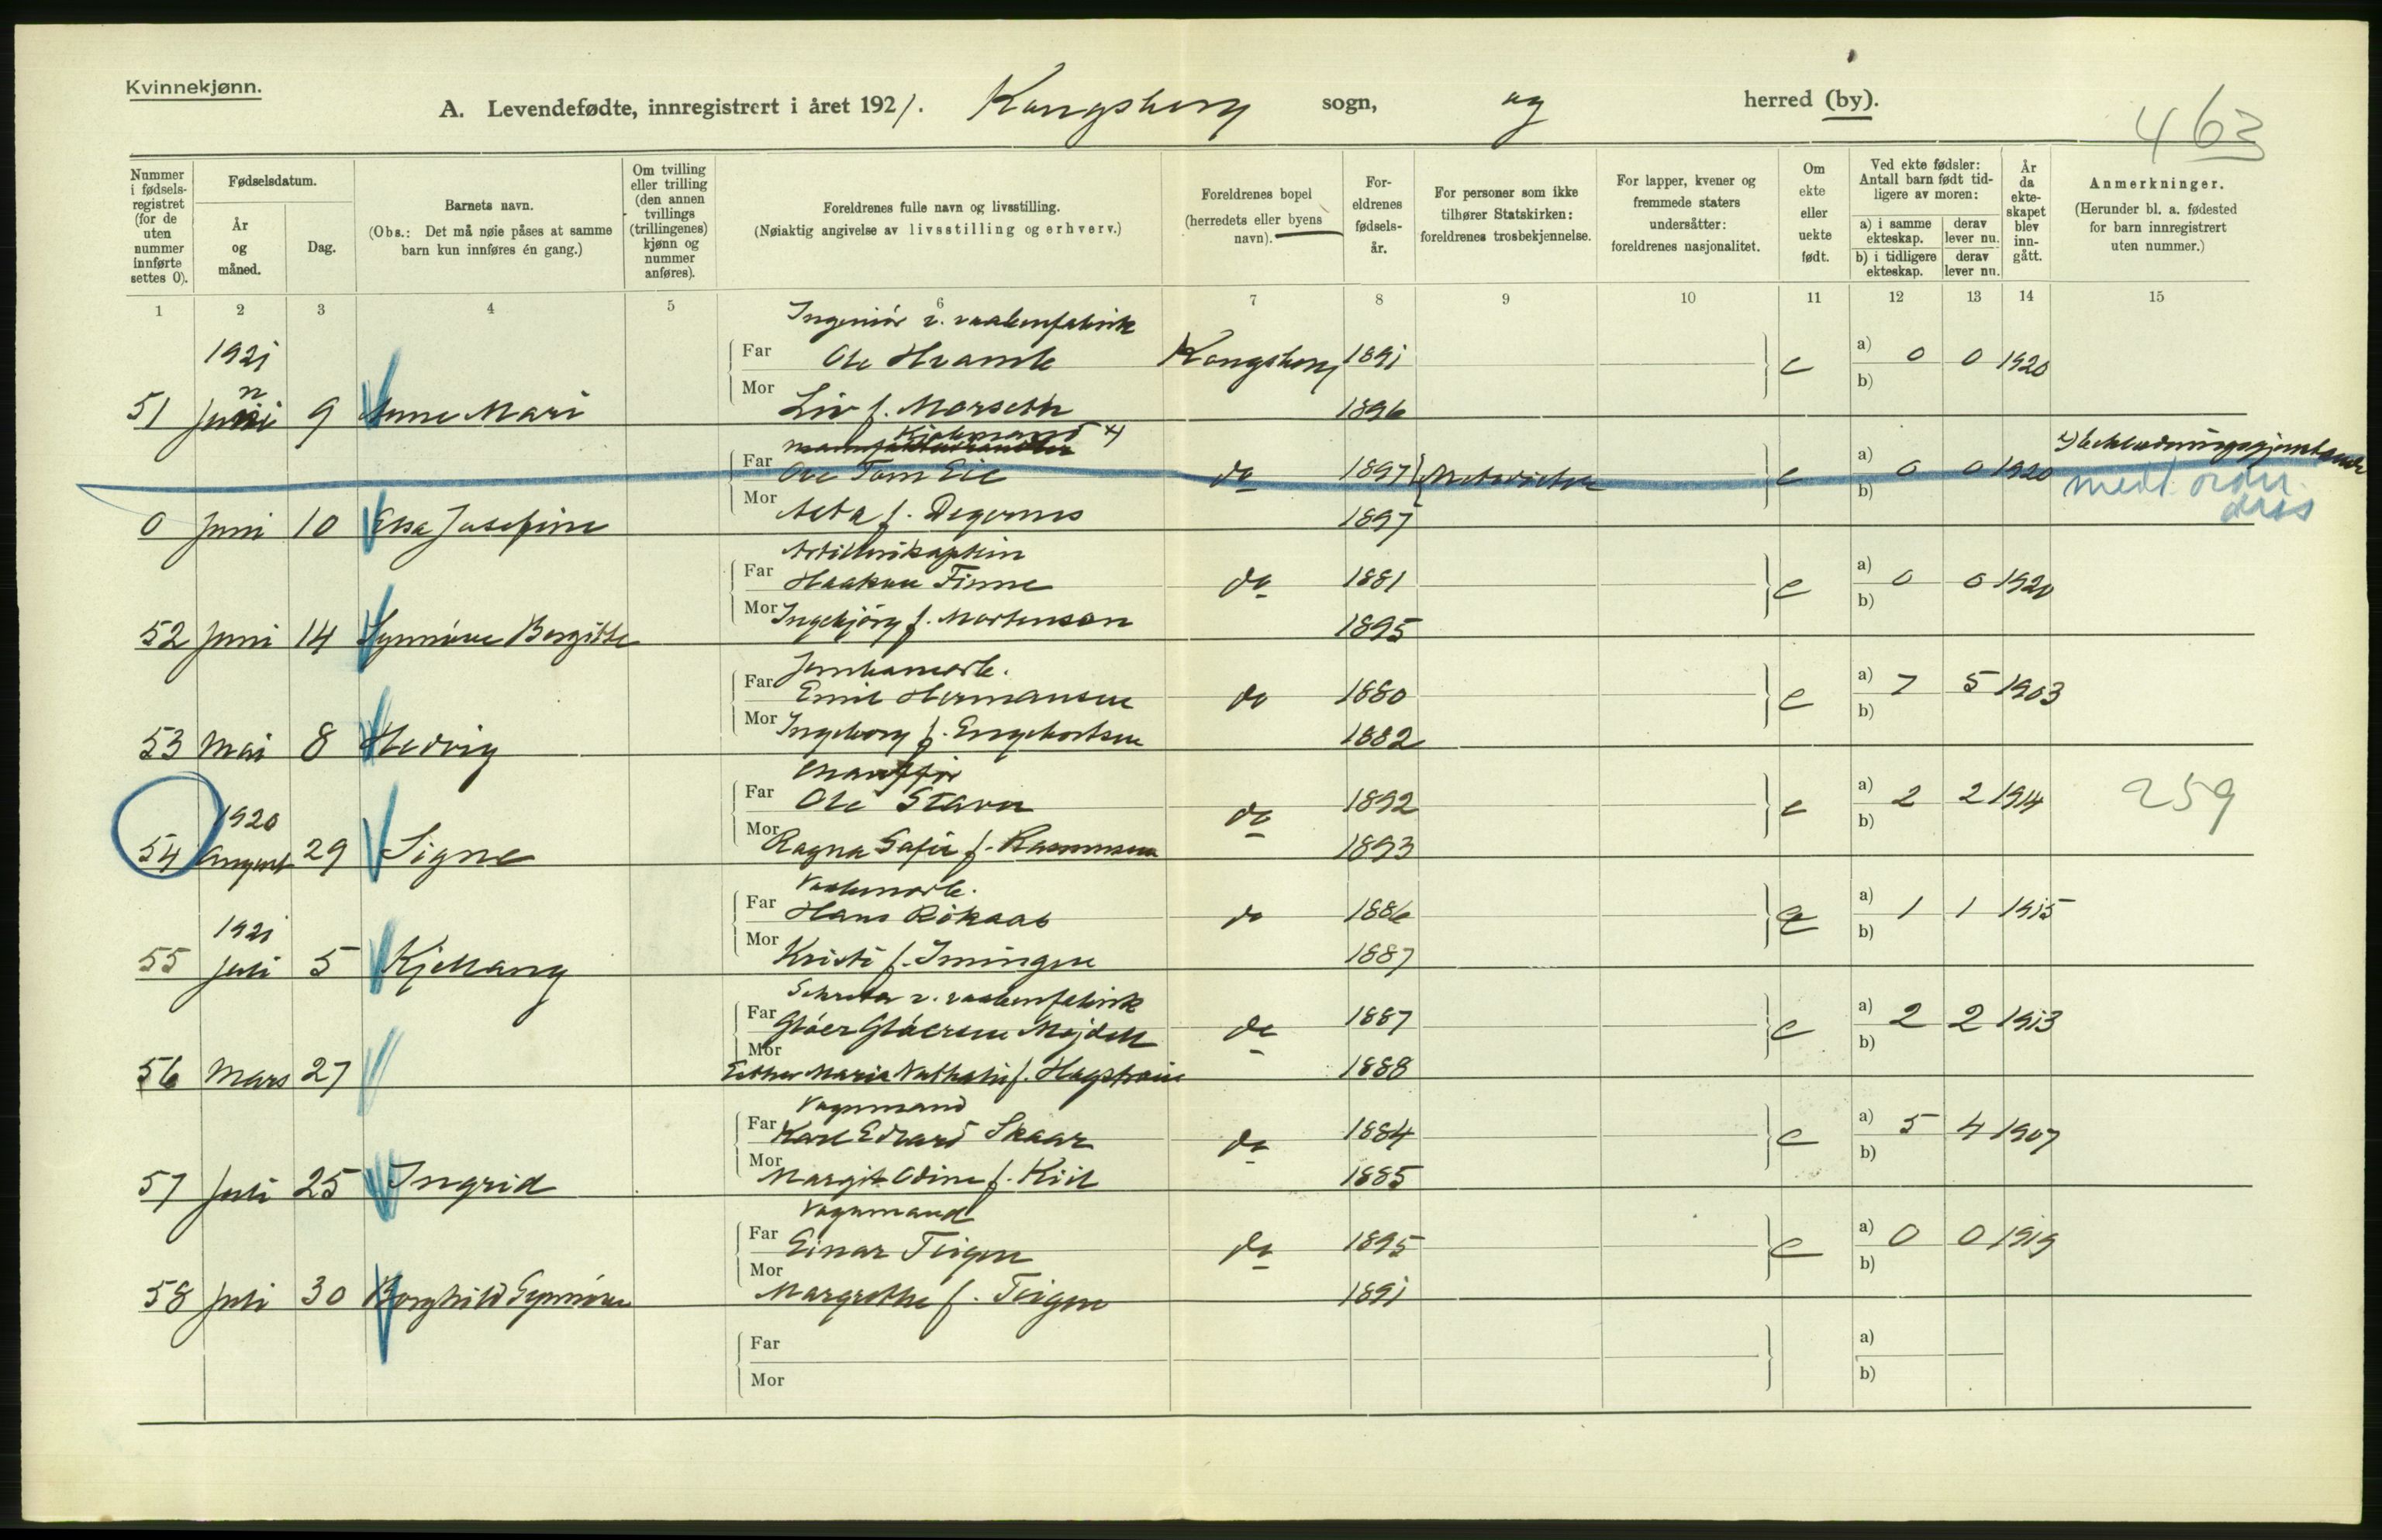 Kvinnekjønn.
A. Levendefødte, innregistrert i året 1921. Kongsberg sogn, og herred (by).
463
Nummer i fødsels-registret (for de uten nummer innførte settes 0).
Fødselsdatum.
År og måned.
Dag.
Barnets navn.
(Obs.: Det må nøie påses at samme barn kun innføres én gang.)
Om tvilling eller trilling (den annen tvillings (trillingenes) kjønn og nummer anføres).
Foreldrenes fulle navn og livsstilling.
(Nøiaktig angivelse av livsstilling og erhverv.)
Foreldrenes bopel (herredets eller byens navn).
For-eldrenes fødsels-år.
For personer som ikke tilhører Statskirken: foreldrenes trosbekjennelse.
For lapper, kvener og fremmede staters undersåtter: foreldrenes nasjonalitet.
Om ekte eller uekte født.
Ved ekte fødsler: Antall barn født tid-ligere av moren:
a) i samme ekteskap.
derav lever nu.
b) i tidligere ekteskap.
derav lever nu.
År da ekte-skapet blev inn-gått.
Anmerkninger.
(Herunder bl. a. fødested for barn innregistrert uten nummer.)
1 2 3 4 5 6 7 8 9 10 11 12 13 14 15
Ingeniör v. vaabenfabrik
1921 Far Ole Hramb Kongsberg 1891 e a) 0 0 1920
b)
51 Juni 9 Anne Mari Mor Liv f. Morseth 1896
Kjøbmand x)
Far Ove Tom Eie do 1897 Metodister e a) 0 0 1920
b)
medl. av den diss
0 Juni 10 Elsa Josefine Mor Asta f. Degernes 1897
Artillerikaptein
Far Haakon Finne do 1881 e a) 0 0 1920
b)
52 Juni 14 Synnöve Bergitte Mor Ingebjörg f. Mortenson 1895
Jernbanearb.
Far Emil Hermansen do 1880 e a) 7 5 1903
b)
53 Mai 8 Hedvig Mor Ingeborg f. Engebretsen 1882
Chauffør
Far Ole Stavn do 1892 e a) 2 2 1914 259
b)
1920
54 August 29 Signe Mor Ragna Sofie f. Rasmussen 1893
Vaabenarb.
Far Hans Rökaas do 1886 e a) 1 1 1915
b)
1921
55 Juli 5 Kjellaug Mor Kristi f. Imingen 1887
Sekretær v. vaabenfabrik
Far Glöer Glöersen Mejdell do 1887 e a) 2 2 1913
b)
56 Mars 27 Mor Esther Maria Nathalie f. Hagstrøm 1888
Vognmand
Far Karl Edvard Skaar do 1884 e a) 5 4 1907
b)
57 Juli 25 Ingrid Mor Margit Odine f. Kiil 1885
Vognmand
Far Einar Teigen do 1895 e a) 0 0 1919
b)
58 Juli 30 Borghild Synnöve Mor Margrethe f. Teigen 1891
Far a)
Mor b)